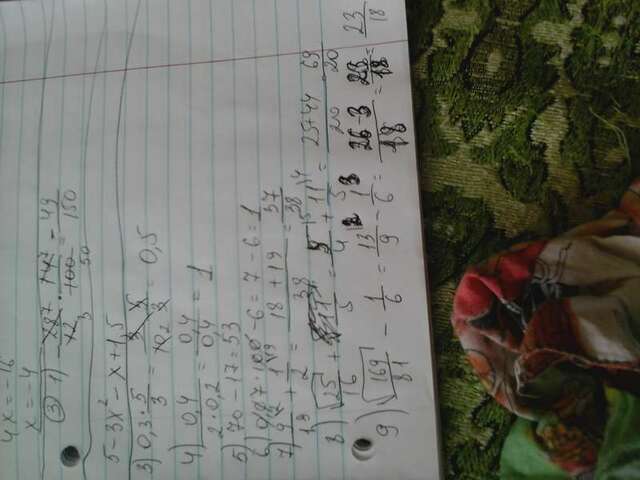 4x=-16
x=-4
③ 1) = -49/150
5-3x²-x+1,5
3) 0,3·5/3 = 3/10·5/3 = 0,5
4) 0,4/2·0,2 = 0,4/0,4 = 1
5) 70-17=53
6) -6=7-6=1
7) 9/19 + 1/2 = 18+19/38 = 37/38
8) √25/16 + 11/5 = 5/4 + 11/5 = 25+44/20 = 69/20
9) √169/81 - 1/6 = 13/9 - 1/6 = 26-3/18 = 23/18 = 23/18